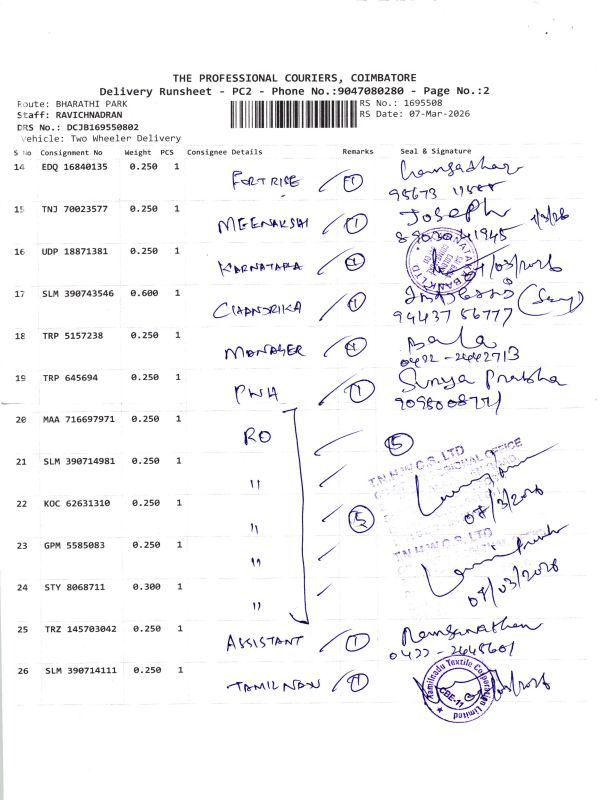 THE PROFESSIONAL COURIERS, COIMBATORE
Delivery Runsheet - PC2 - Phone No.:9047080280 - Page No.:2
Route: BHARATHI PARK
RS No.: 1695508
Staff: RAVICHNADRAN
RS Date: 07-Mar-2026
DRS No.: DCJB169550802
Vehicle: Two Wheeler Delivery
S No Consignment No Weight PCS Consignee Details Remarks Seal & Signature
14 EDQ 16840135 0.250 1 FORTRISE 1
95673
15 TNJ 70023577 0.250 1 MEENAKSHI 1 Joseph
16 UDP 18871381 0.250 1 KARNATAKA
KARNATAKA BANK LTD
17 SLM 390743546 0.600 1 CHANDRIKA 1
94437 56777
18 TRP 5157238 0.250 1 MANAGER Bala
0422-2442713
19 TRP 645694 0.250 1 PWH 1 Surya Prabha
20 MAA 716697971 0.250 1 RO 5
T.N.H.W.C.S. LTD
21 SLM 390714981 0.250 1 "
22 KOC 62631310 0.250 1 " 5
07/3/2026
23 GPM 5585083 0.250 1 "
T.N.H.W.C.S. LTD
24 STY 8068711 0.300 1 "
07/03/2026
25 TRZ 145703042 0.250 1 ASSISTANT 1 Ramganathan
0422-2648601
26 SLM 390714111 0.250 1 TAMILNADU 1
Tamilnadu Textile Corporation Limited
CBE-11